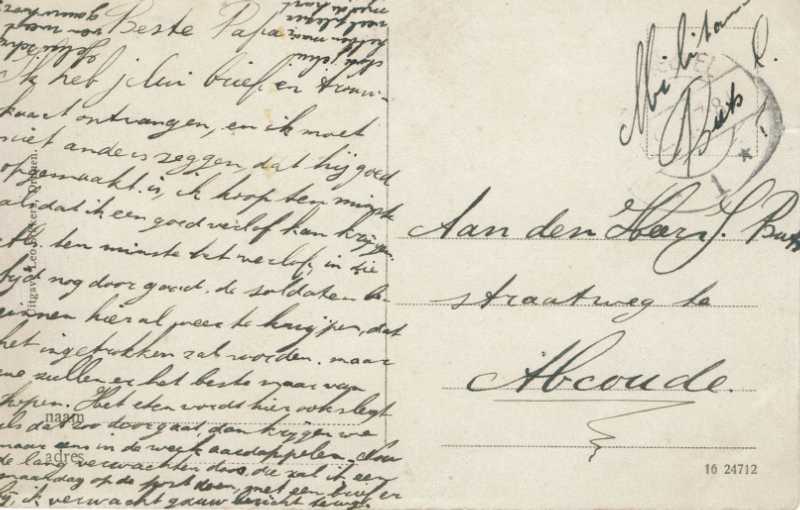 Beste Papa
Ik heb jelui brief en trouw-
kaart ontvangen, en ik moet
niet anders zeggen, dat hij goed
opgemaakt is, ik hoop ten minste
als dat ik een goed verlof kan krijgen
ten minste het verlof, in die
tijd nog door goed. de soldaten be-
ginnen hier al weer te knijpen, dat
het ingetrokken zal worden. maar
we zullen er het beste maar van
hopen. Het eten wordt hier ook slegt
als dat zoo doorgaat dan krijgen we
maar ens in de week aardappelen. Nou
de lang verwachten doos, die zal ik een
maandag op de post doen, met een brief er
bij, ik verwacht gauw bericht terug.
Militair
Buts
Aan den Heer J. Buts
straatweg te
Abcoude.
naam
adres
16 24712